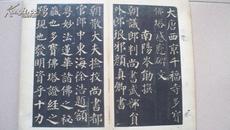 大唐西京千福寺多寶
佛塔感應碑文
南陽岑勛撰
朝議郎判尚書武部員
外郎琅邪顏真卿書
朝散大夫撿挍尚書都
官郎中東海徐浩題額
粵妙法蓮華諸佛之秘
藏也多寶佛塔證經之
踊現也發明資乎十力